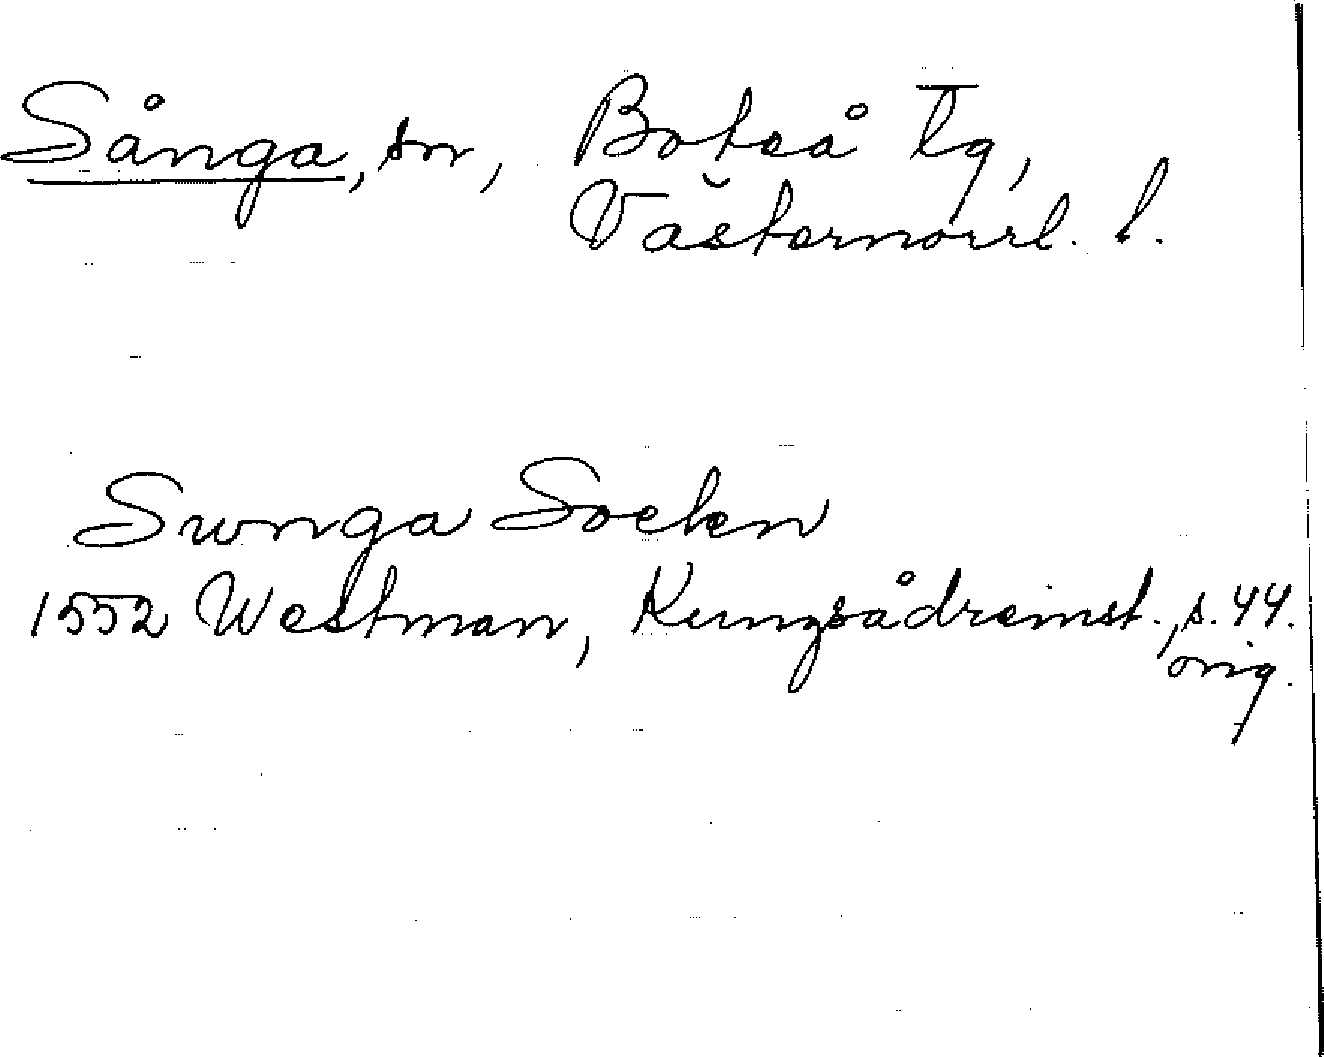 Sånga, sn, Boteå tg,
Västernorrl. l.
Swnga Socken
1552 Westman, Kungsådreinst., s. 44.
orig.